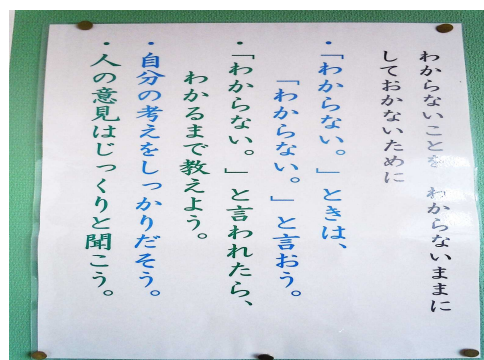 わからないことを わからないままに
しておかないために
・「わからない。」ときは、
「わからない。」と言おう。
・「わからない。」と言われたら、
わかるまで教えよう。
・自分の考えをしっかりだそう。
・人の意見はじっくりと聞こう。